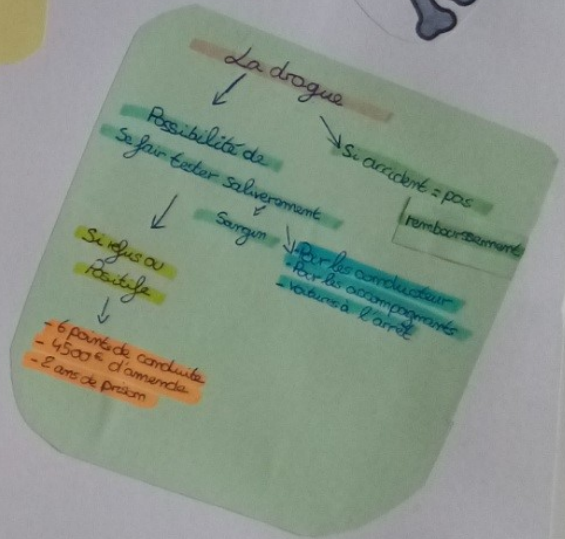 La drogue
Possibilité de
se fair tester saliverement
Sanguin
Si accident = pas
remboursement
Si refus ou
Positife
- Par les conducteur
- Par les accompagnants
- voitures à l'arrêt
- 6 points de conduite
- 4500€ d'amende
- 2 ans de prison